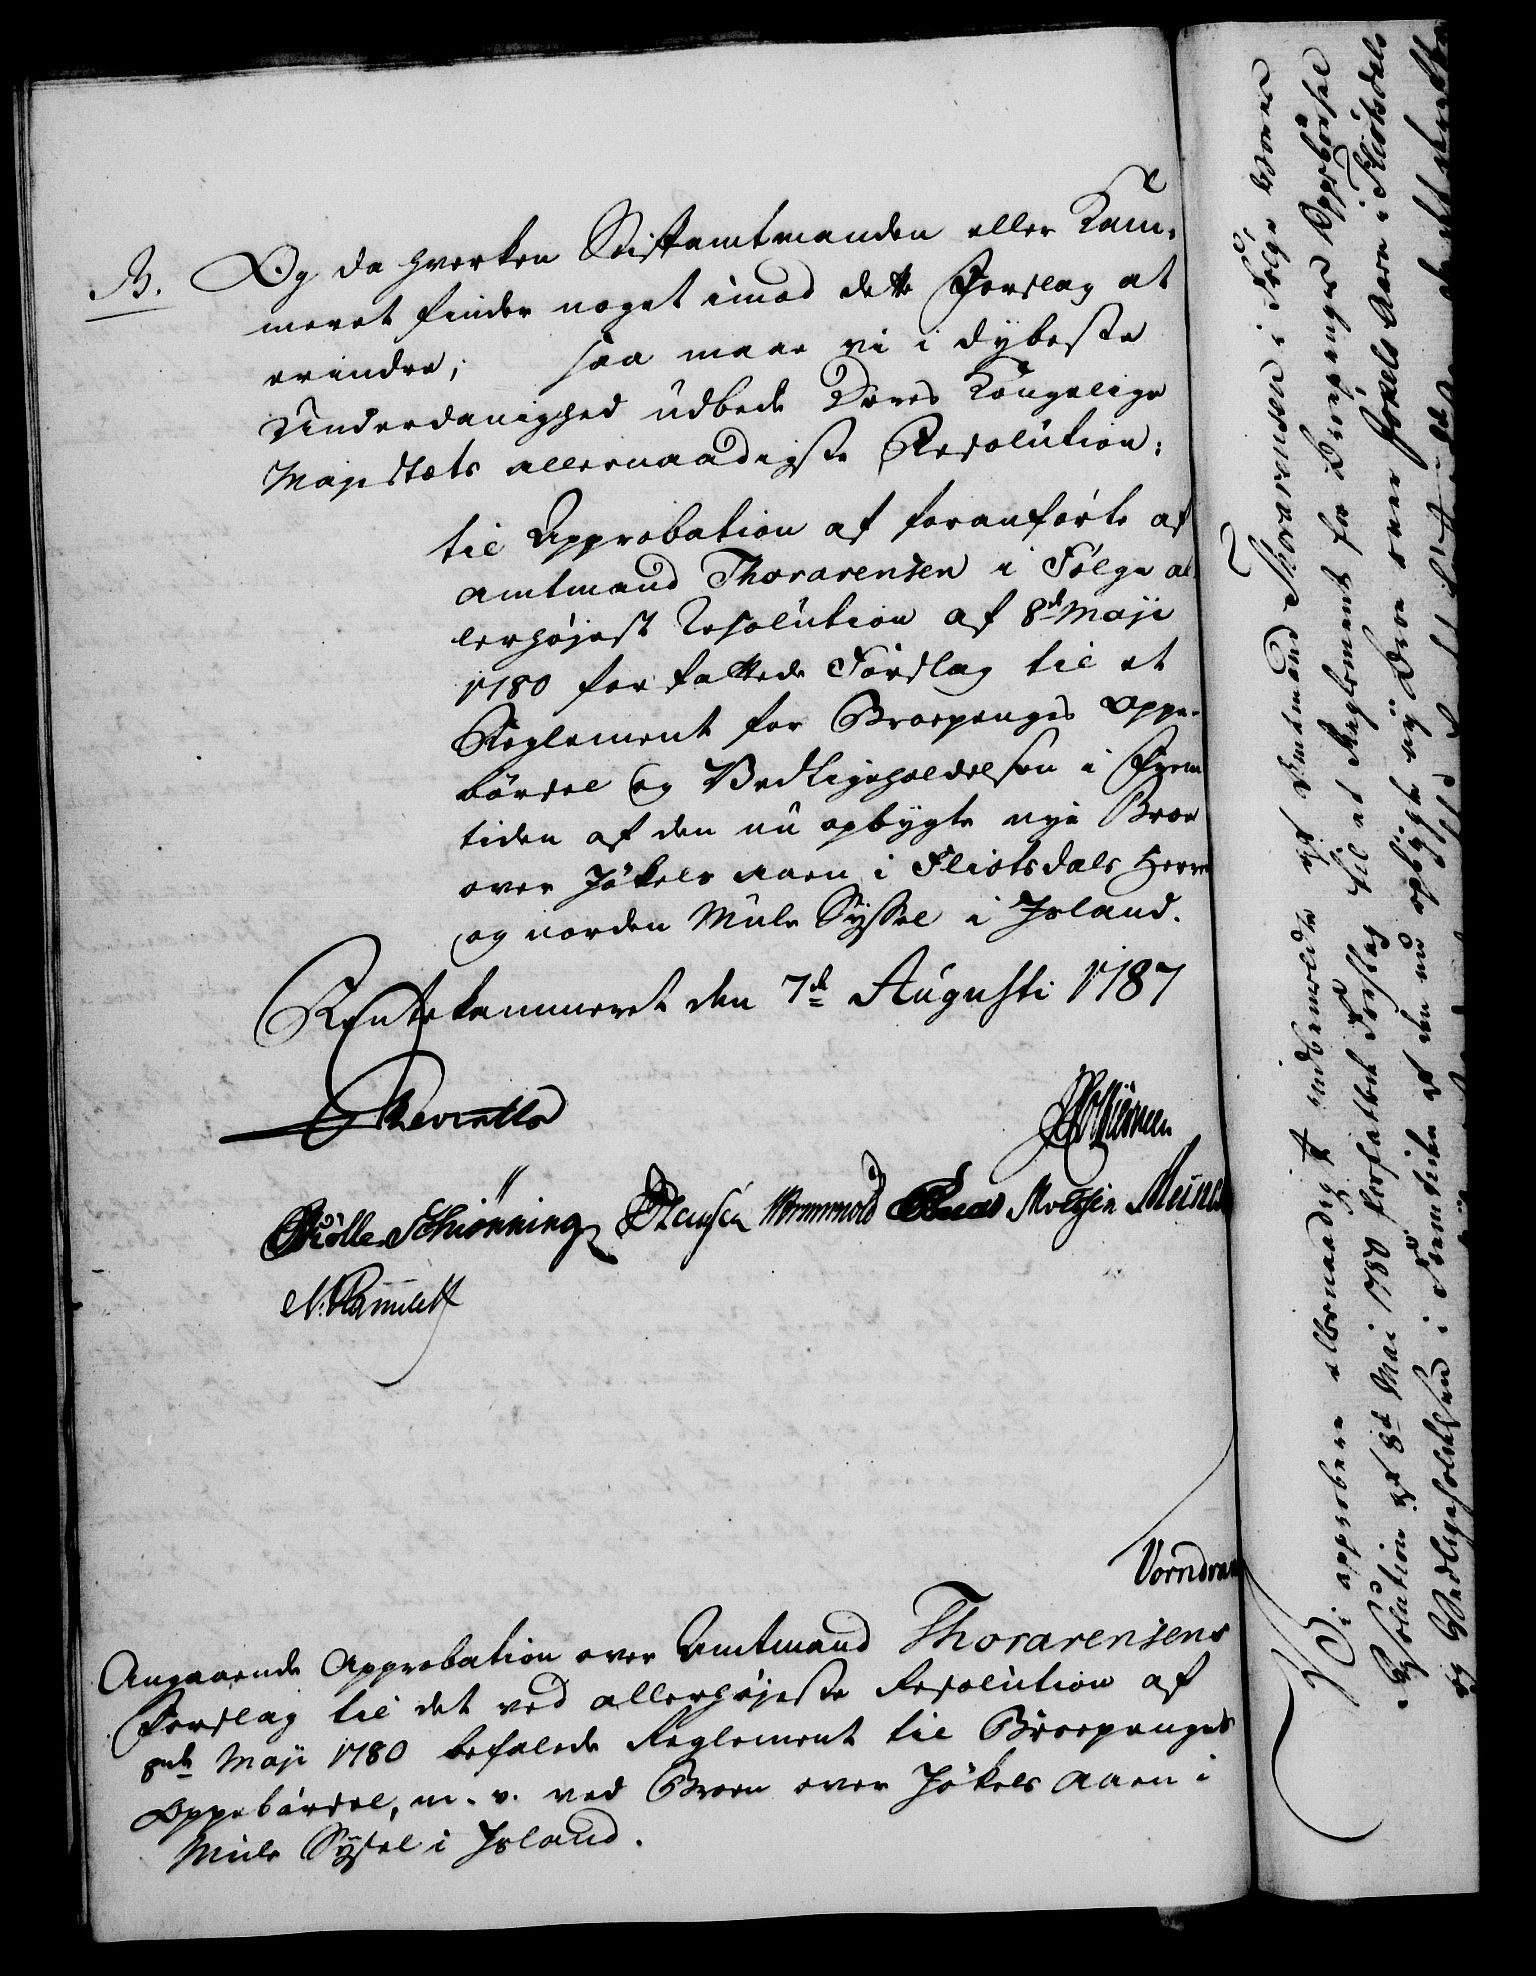 B. Og da hverken Stiftamtmanden eller Kam-
meret finder noget imod dette Forslag at
erindre; saa maae vi i dybeste
Underdanighed udbede Deres Kongelige
Majestæts allernaadigste Resolution:
til Approbation af foranførte af
Amtmand Thorarensen i Følge al-
lerhøjest Resolution af 8de Maji
1780 forfattede Forslag til et
Reglement for Broepenges Oppe-
børsel og Vedligeholdelsen i Frem
tiden af den nu opbygte nye Broe
over Jøkels Aaen i Fliotsdals Herre
og norden Mule Syssel i Island.
Rentekammeret den 7de Augusti 1787
Reventlo
Trölle Schiönning Hansen Wormskiold Müns
N. Ramlett
Vorndran
Angaaende Approbation over Amtmand Thorarensens
Forslag til det ved allerhøjeste Resolution af
8de Maji 1780 befalede Reglement til Broepenges
Oppebørsel, m. v. ved Broen over Jøkels Aaen i
Mule Syssel i Island.
Vi approbere allernaadigst indbemeldte af Amtmand Thorarensen i Følge Vores
Resolution af 8de Mai 1780 forfattet Forslag til et Reglement for Broepenges Oppebørsel
og Vedligeholdelsen i Fremtiden af den nu opbygte nÿe Broe over Jøkels Aaen i Fliotsdals